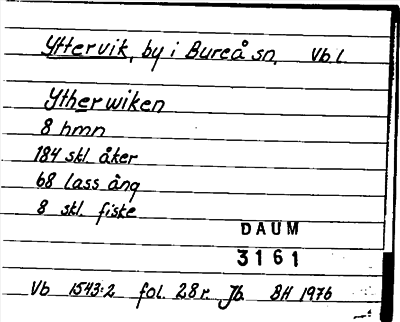 Yttervik, by i Bureå sn, Vb l
Ytherwiken
8 hmn
184 skl. åker
68 lass äng
8 skl. fiske
DAUM
3161
Vb 1543:2 fol. 28r. Jb. BH 1976